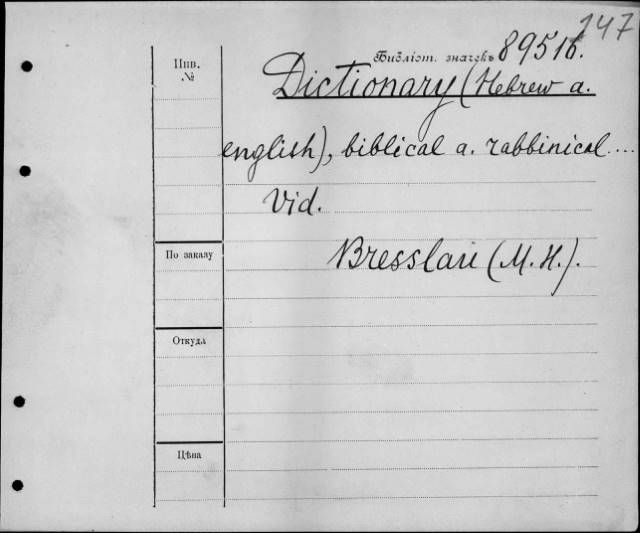 147
Инв. №
Библіот. значекъ 89516.
Dictionary (Hebrew a.
english), biblical a. rabbinical ...
Vid.
Bresslau (M. H.).
По заказу
Откуда
Цѣна